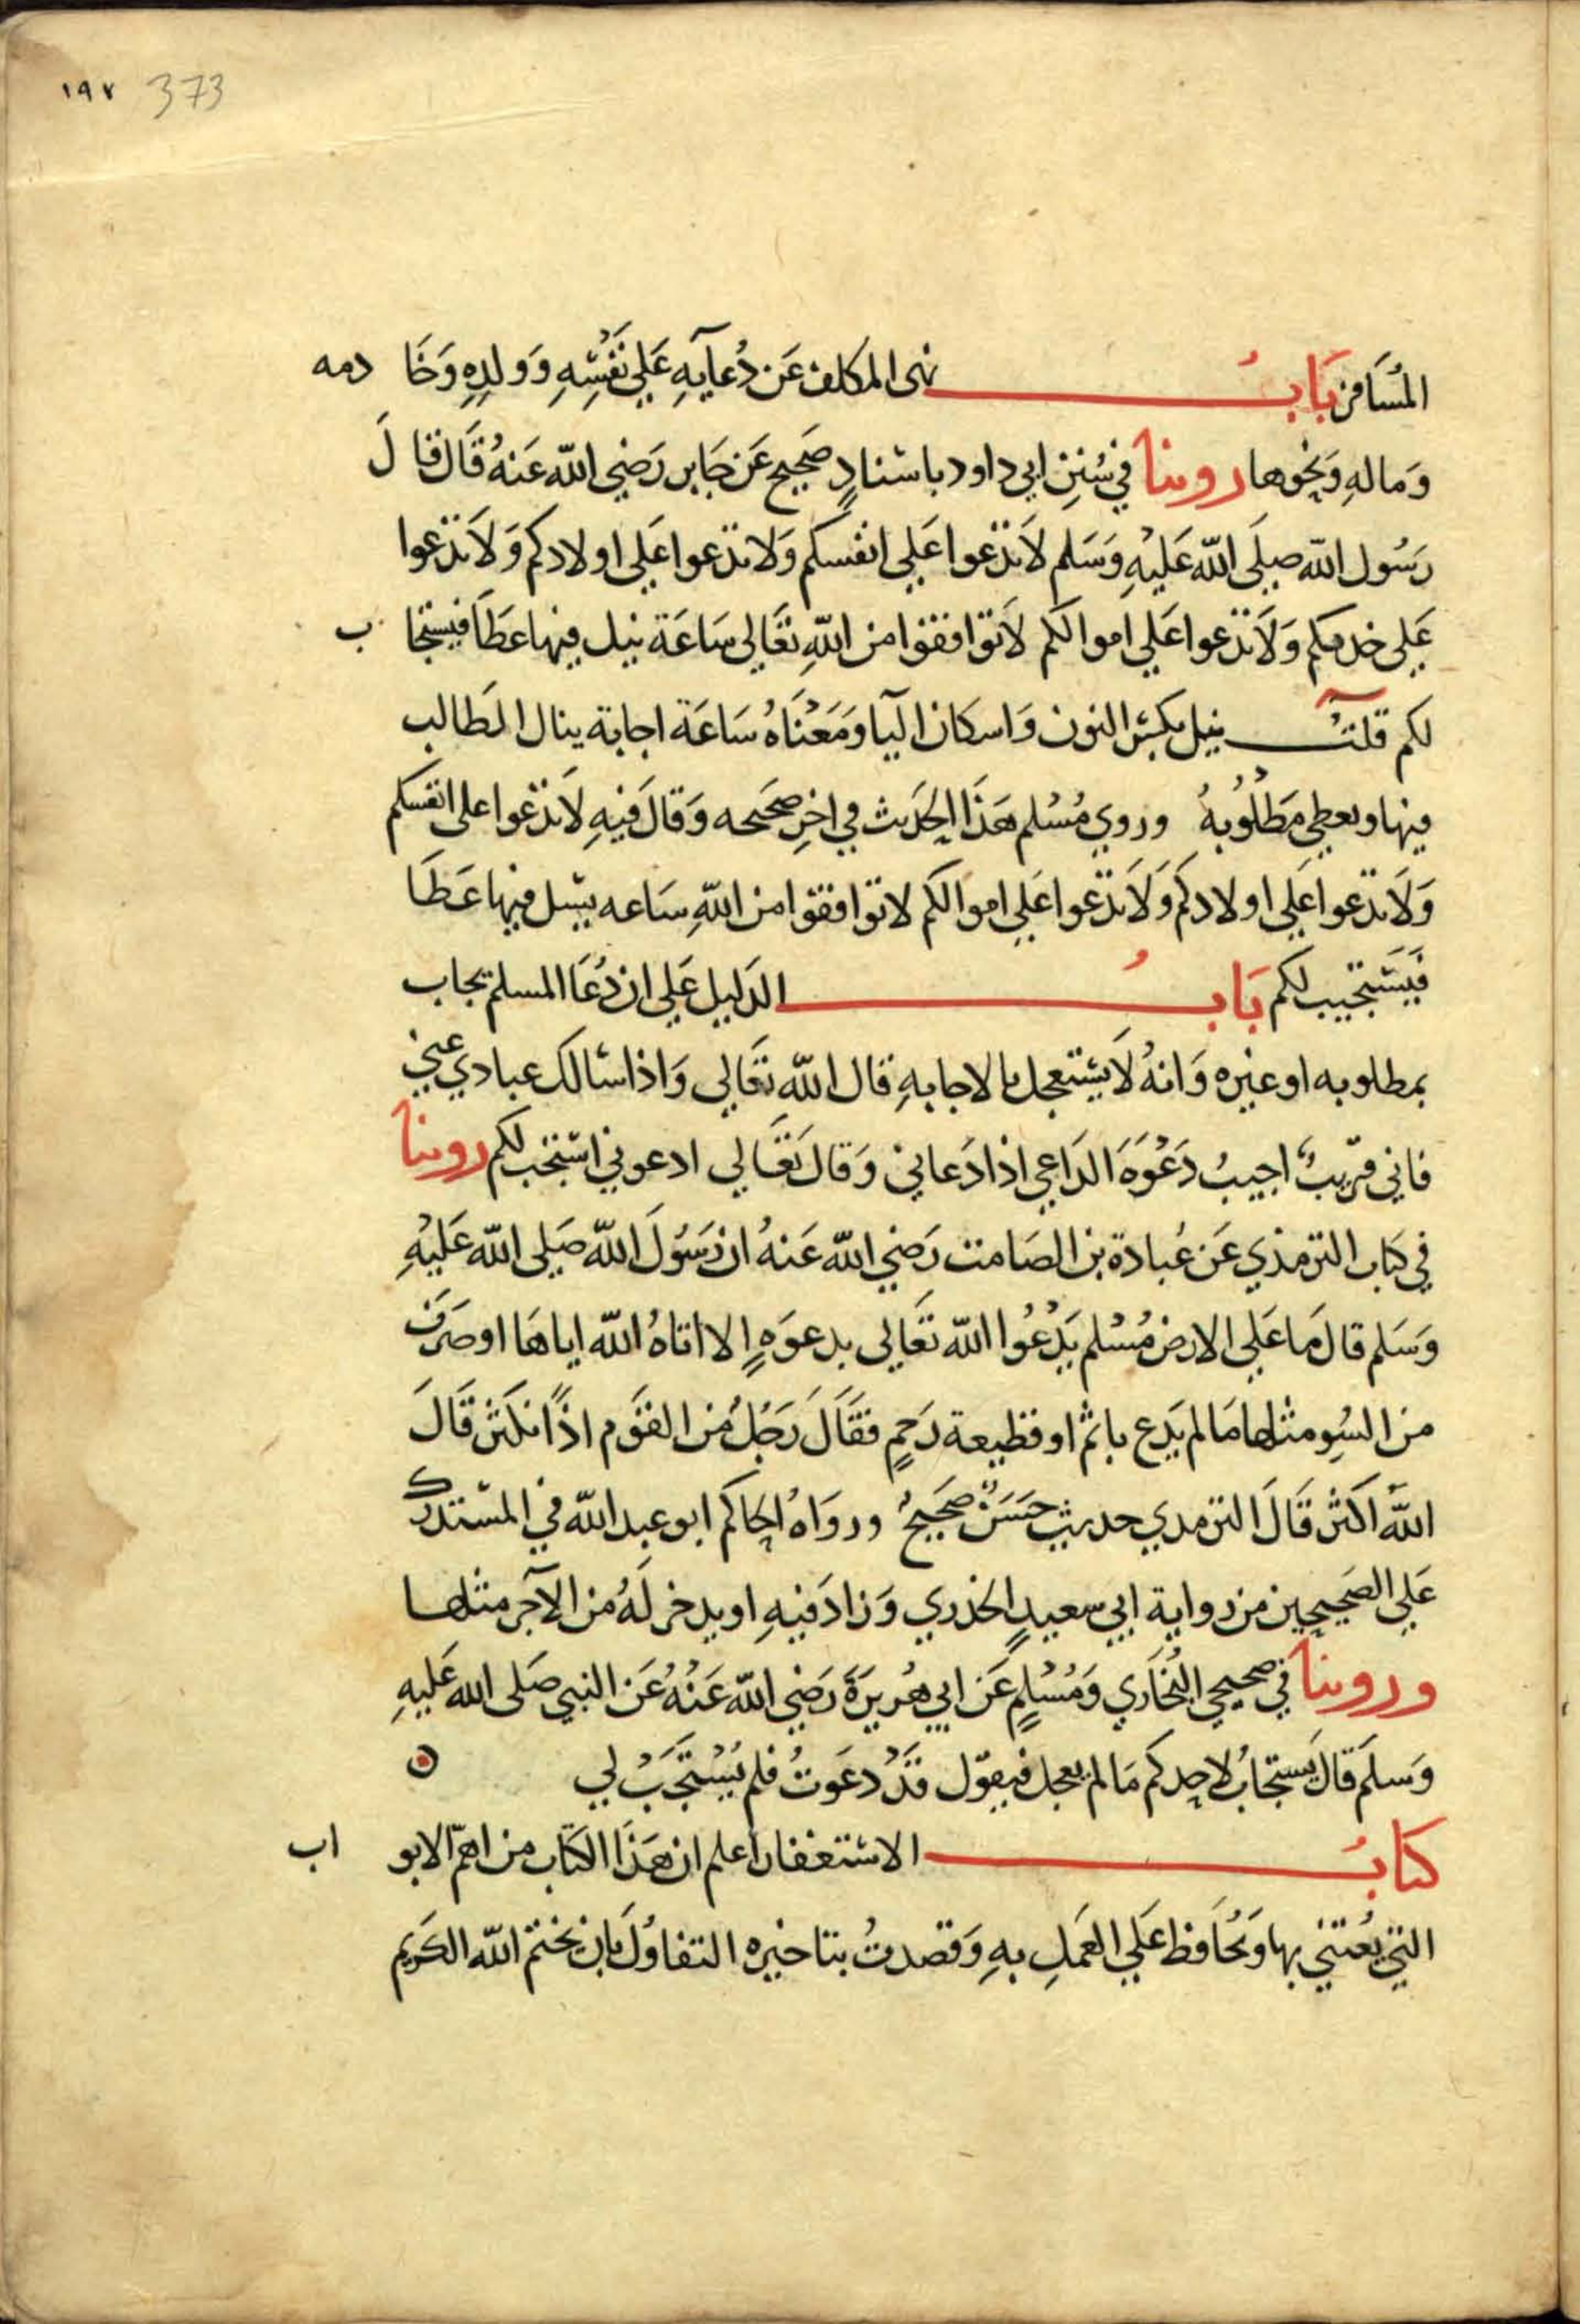 ١٩٧ 373
المُسَافر بَابُ نهى المكلف عَن دُعآيهِ عَلى نَفْسِهِ وَولدِهِ وَخَا دمه
وَمالهِ وَنحوها روينا في سُنَنِ ابي داود باسنادٍ صَحيح عَن جَابر رَضي الله عَنهُ قَال قا لَ
رَسُول الله صلى الله عَليْهِ وَسَلم لاَ تدْعوا عَلى انفسكم وَلا تدعوا عَلى اولادكم وَلاَ تدْعوا
عَلى خدمكم وَلاَ تدْعوا عَلى اموالكم لاَ توافقوا من اللهِ تعَالى سَاعَة نيل فيها عطَا فيستجا ب
لكم قلتُ نيل بكسْر النون وَاسكان اليا وَمَعْنَاهُ سَاعَة اجابة ينال الطالب
فيها ويعطي مَطلُوبهُ وروي مُسْلم هَذَا الحَديث في اخِر صحَيحه وَقالَ فيهِ لاَ تدْعوا على انفسكم
وَلاَ تدعوا عَلى اولادكم وَلاَ تدْعوا عَلى اموالكم لا توافقوا من اللهِ سَاعه يسل فيها عَطَا
فَيسْتجيب لكم بَابُ الدَليل عَلى ان دُعَا المسلم يجاب
بمطلوبه او غيره وَانهُ لاَ يسْتعجل بالاجابهِ قال الله تعَالى وَاذا سَالك عبادي عني
فاني قريبٌ اجيبُ دَعْوَةَ الدَاعي اذا دَعاني وَقالَ تعَالي ادعوني استجب لكم روينا
في كتاب الترمذي عَن عُبادة بن الصَامت رَضي الله عَنهُ ان رَسُولَ الله صَلى الله عَليْهِ
وَسَلم قالَ مَا عَلى الارض مُسْلم يَدْعُوا الله تعَالى بدعوَةٍ الا اتاهُ الله اياهَا او صَرَفَ
من السُو مثلها مَا لم يَدع باثم او قطيعة رَحمٍ فقَالَ رَجُلٌ من القوَم اذًا نكثر قَالَ
اللهُ اكثر قَالَ الترمدي حديث حَسَنٌ صَحيحٌ ورواهُ الحاكم ابو عبد الله في المسْتدرك
عَلى الصَحيحين من رواية ابي سعيدٍ الخدري وَزادَ فيهِ او يدخر لَهُ من الآجر مثلها
وروينا في صحيحي البُخَاري وَمُسْلمٍ عَن ابي هُريرَةَ رَضي الله عَنْهُ عَن النبي صَلى الله عَليهِ
وَسَلم قالَ يَستجابُ لاحدكم مَا لم يعجل فيقول قَدْ دعَوتُ فلم يُسْتجَبْ لي
كتابُ الاستغفار اعلم ان هَذَا الكتاب من اهمّ الابو اب
التي يُعتني بها وَيحُافظ عَلى العَملِ بهِ وَقصدتُ بتاخيره التفاوُلَ بان يختم الله الكريم